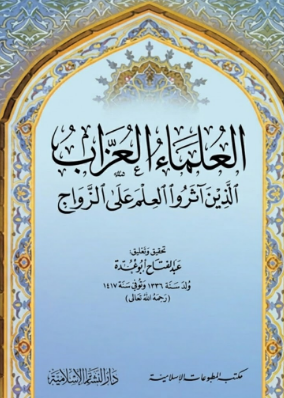 العُلمَاءُ العُزَّابُ
الَّذِينَ آثَرُوا العِلْمَ عَلَى الزَّوَاجِ
تحقيق وتعليق:
عبد الفتاح أبو غُدّة
وُلد سَنة ١٣٣٦ وَتُوفي سَنة ١٤١٧
(رَحِمَهُ اللهُ تعَالى)
مكتب المطبوعات الإسلامية
دار البشائر الإسلامية